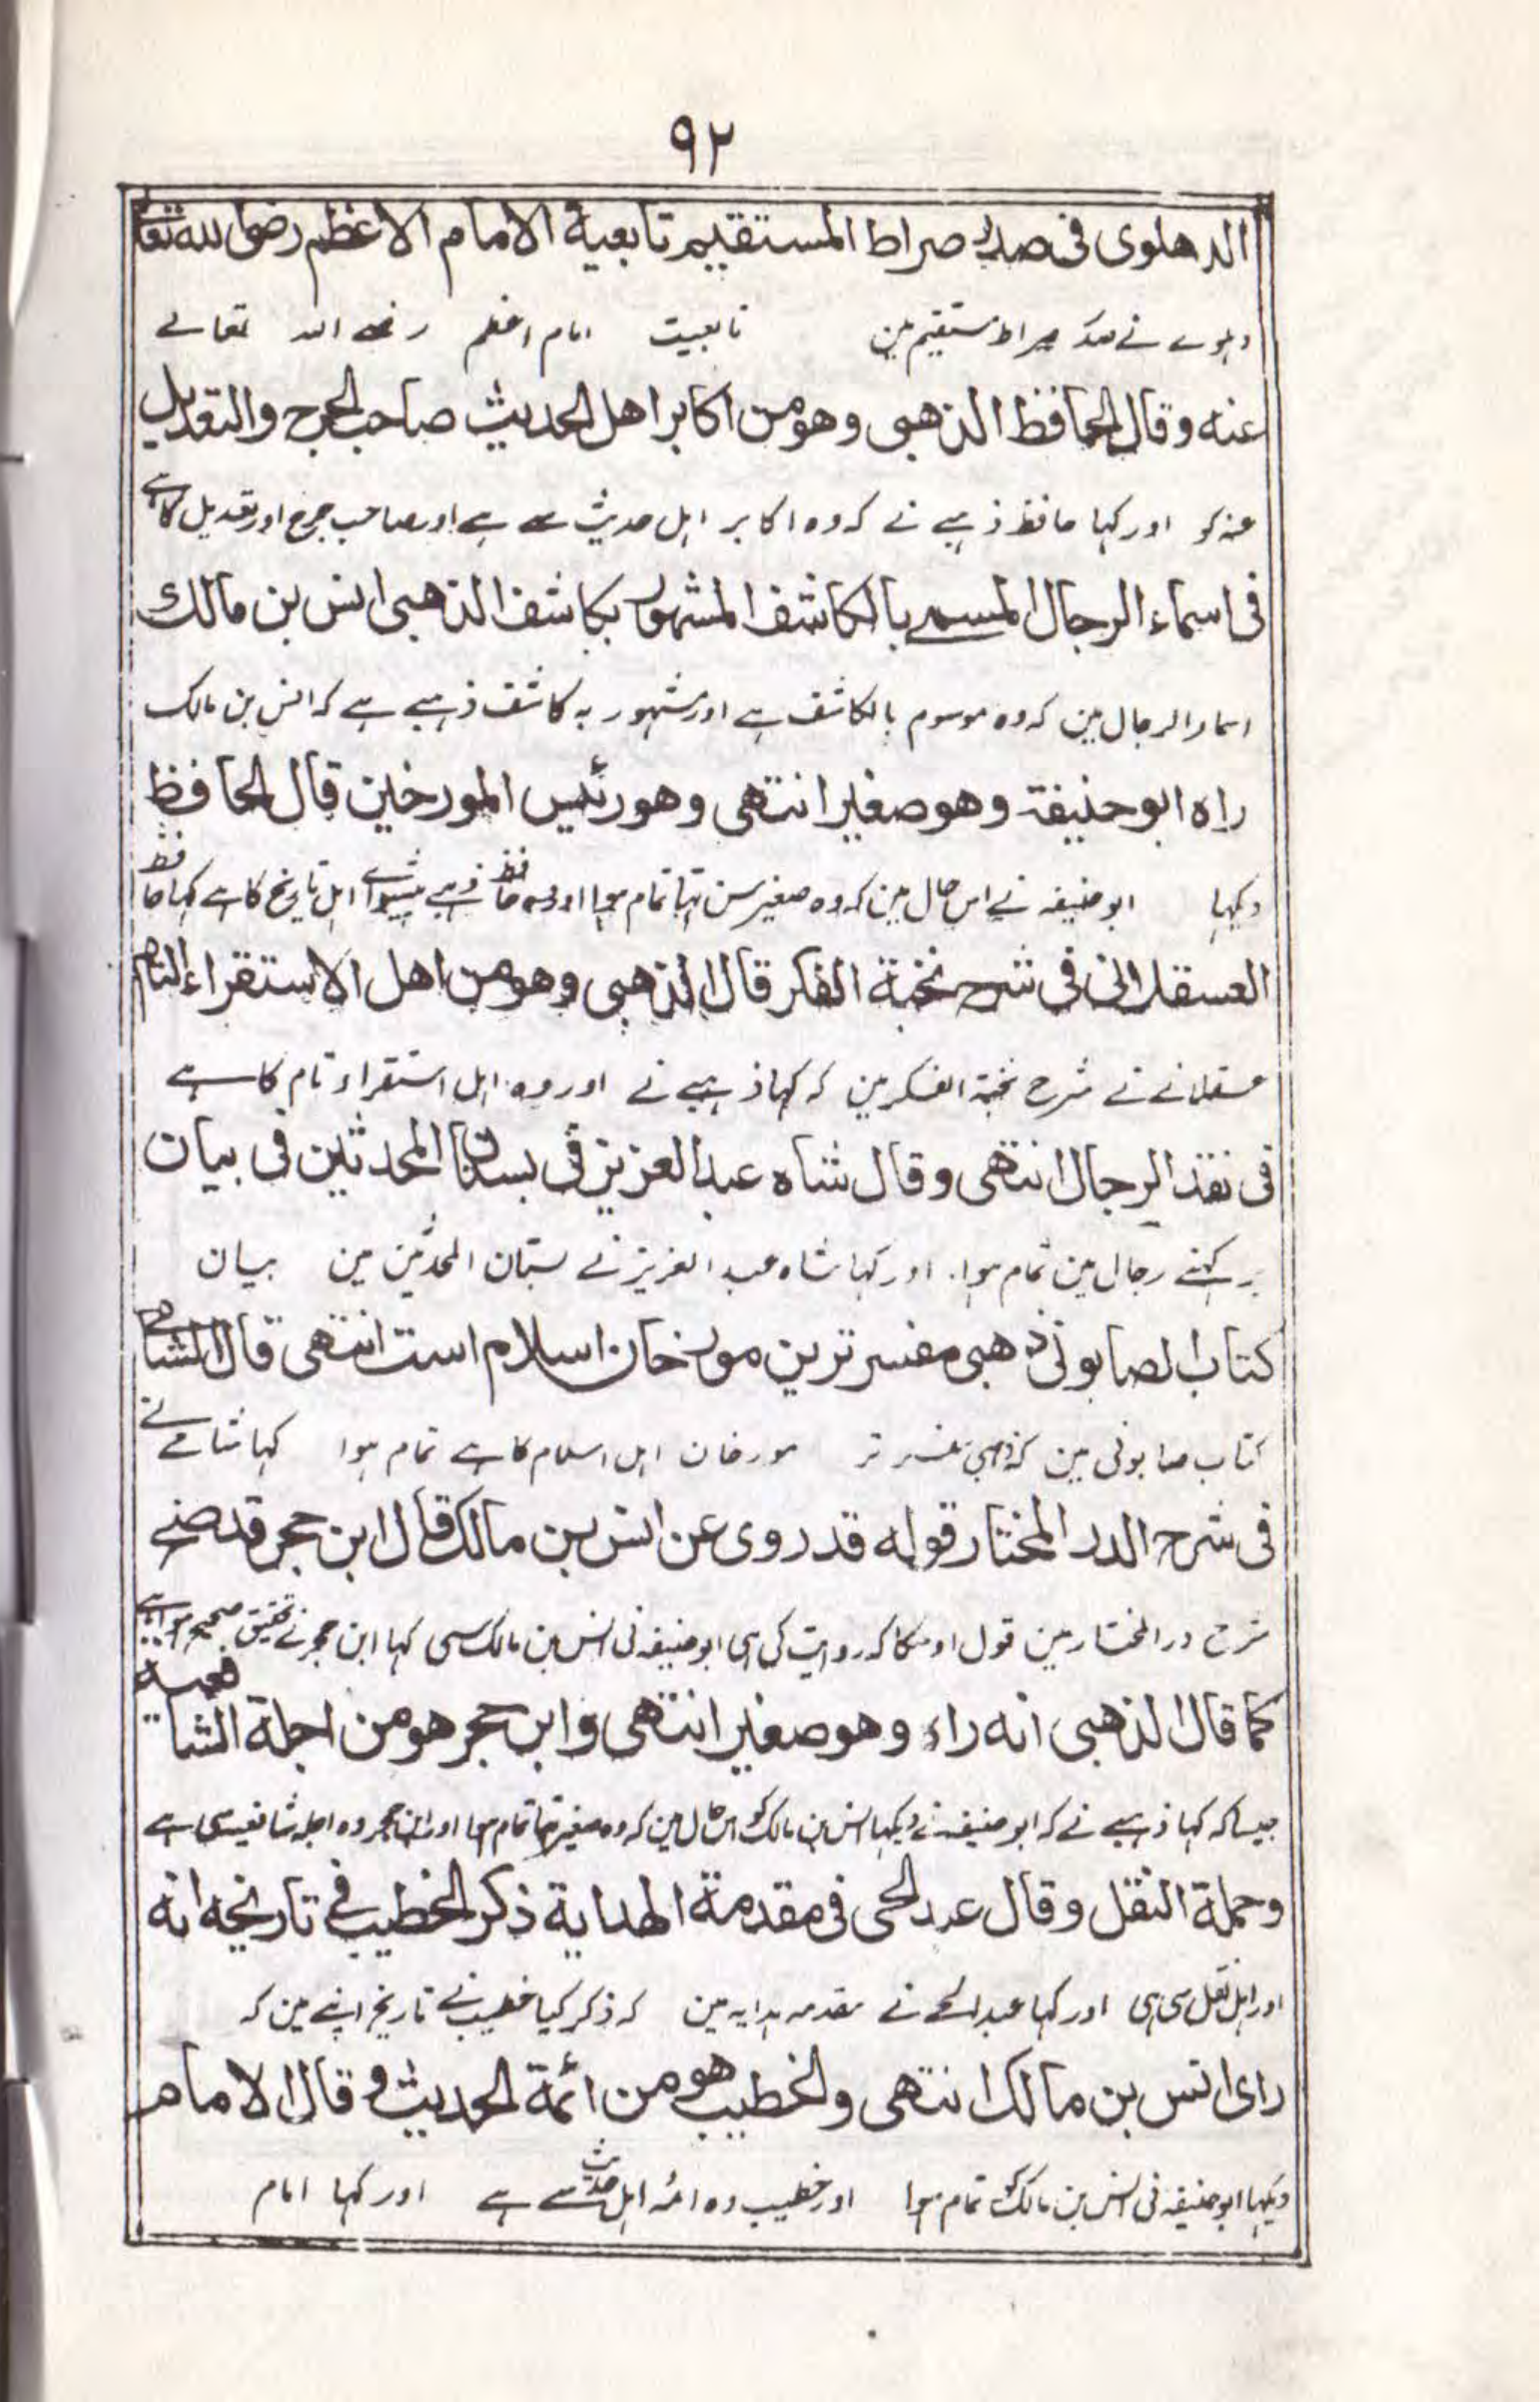 ۹۲
الدهلوی فی صدر صراط المستقیم تابعیة الامام الاعظم رضی الله تعالی
دہلوے نے صدر صراط مستقیم مین تابعیت امام اعظم رضے اللہ تعالے
عنه وقال الحافظ الذهبی وهو من اکابر اهل الحدیث صاحب الجرح والتعدیل
عنہ کو اور کہا حافظ ذہبے نے کہ وہ اکابر اہل حدیث سے ہے اور صاحب جرح اور تعدیل کا ہے
فی اسماء الرجال المسمے بالکاشف المشهور بکاشف الذهبی انس بن مالک
اسماء الرجال مین کہ وہ موسوم بالکاشف ہے اور مشہور بہ کاشف ذہبے ہے کہ انس بن مالک
راه ابو حنیفة وهو صغیر انتهی وهو رئیس المورخین قال الحافظ
دیکہا ابو حنیفہ نے اس حال مین کہ وہ صغیر سن تہا تمام ہوا اور وہ حافظ ذہبے پیشواے اہل تاریخ کا ہے کہا حافظ
العسقلانی فی شرح نخبة الفکر قال الذهبی وهو من اهل الاستقراء التام
عسقلانے نے شرح نخبۃ الفکر مین کہ کہا ذہبے نے اور وہ اہل استقراء تام کا ہے
فی نقد الرجال انتهی وقال شاه عبد العزیز فی بستان المحدثین فی بیان
پرکہنے رجال مین تمام ہوا۔ اور کہا شاہ عبد العزیز نے بستان المحدثین مین بیان
کتاب الصابونی ذهبی مفسر ترین مورخان اسلام است انتهی قال الشامی
کتاب صابونی مین کہ ذہبی مفسر تر مورخان اہل اسلام کا ہے تمام ہوا کہا شامے نے
فی شرح الدر المختار قوله قد روی عن انس بن مالک قال ابن حجر قد صح
شرح در المختار مین قول اوسکا کہ روایت کی ہی ابو حنیفہ نی انس بن مالک سی کہا ابن حجر نے تحقیق صحیح ہوا ہے
کما قال الذهبی انه راه وهو صغیر انتهی وابن حجر هو من اجلة الشافعیة
جیسا کہ کہا ذہبے نے کہ ابو حنیفہ نے دیکہا انس بن مالک کو اس حال مین کہ وہ صغیر تہا تمام ہوا اور ابن حجر وہ اجلہ شافعیہ سی ہے
وحملة النقل وقال عبد الحی فی مقدمة الهدایة ذکر الخطیب فی تاریخه انه
اور اہل نقل سی ہی اور کہا عبد الحے نے مقدمہ ہدایہ مین کہ ذکر کیا خطیب نے تاریخ اپنے مین کہ
رای انس بن مالک انتهی والخطیب هو من ائمة الحدیث وقال الامام
دیکہا ابو حنیفہ نی انس بن مالک کو تمام ہوا اور خطیب وہ ائمہ اہل حدیث سے ہے اور کہا امام